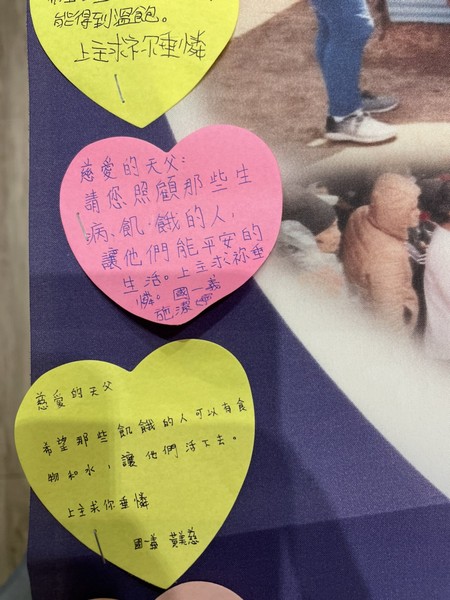 能得到溫飽。
上主求祢垂憐
慈愛的天父:
請您照顧那些生
病、飢餓的人,
讓他們能平安的
生活。上主求祢垂
憐。國一義
施潔
慈愛的天父
希望那些飢餓的人可以有食
物和水,讓他們活下去。
上主求你垂憐
國一義 黃美慈